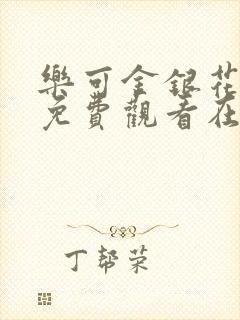 樂可金銀花
免費觀看在
丁帮荣